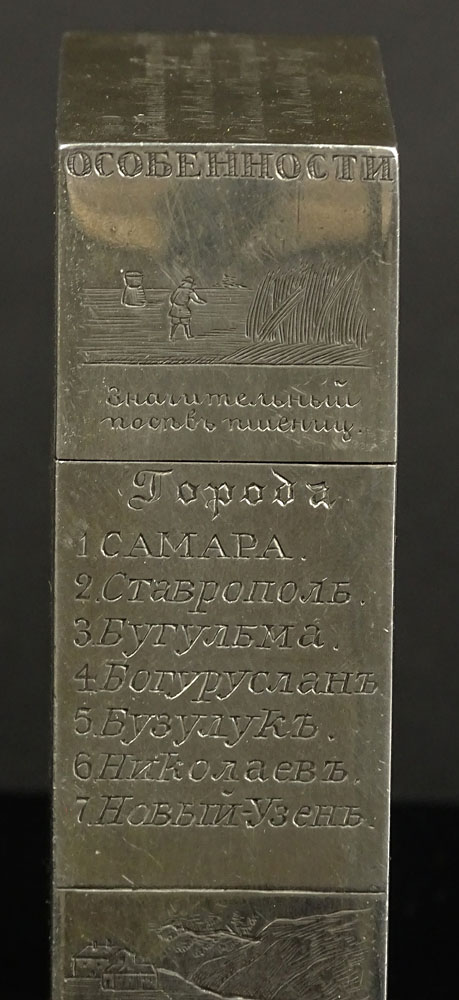 ОСОБЕННОСТИ
Значительный
посѣвъ пшениц.
Города
1 САМАРА.
2. Ставрополь.
3 Бугульма.
4 Богурусланъ
5. Бузулукъ.
6 Николаевъ.
7. Новый-Узень.